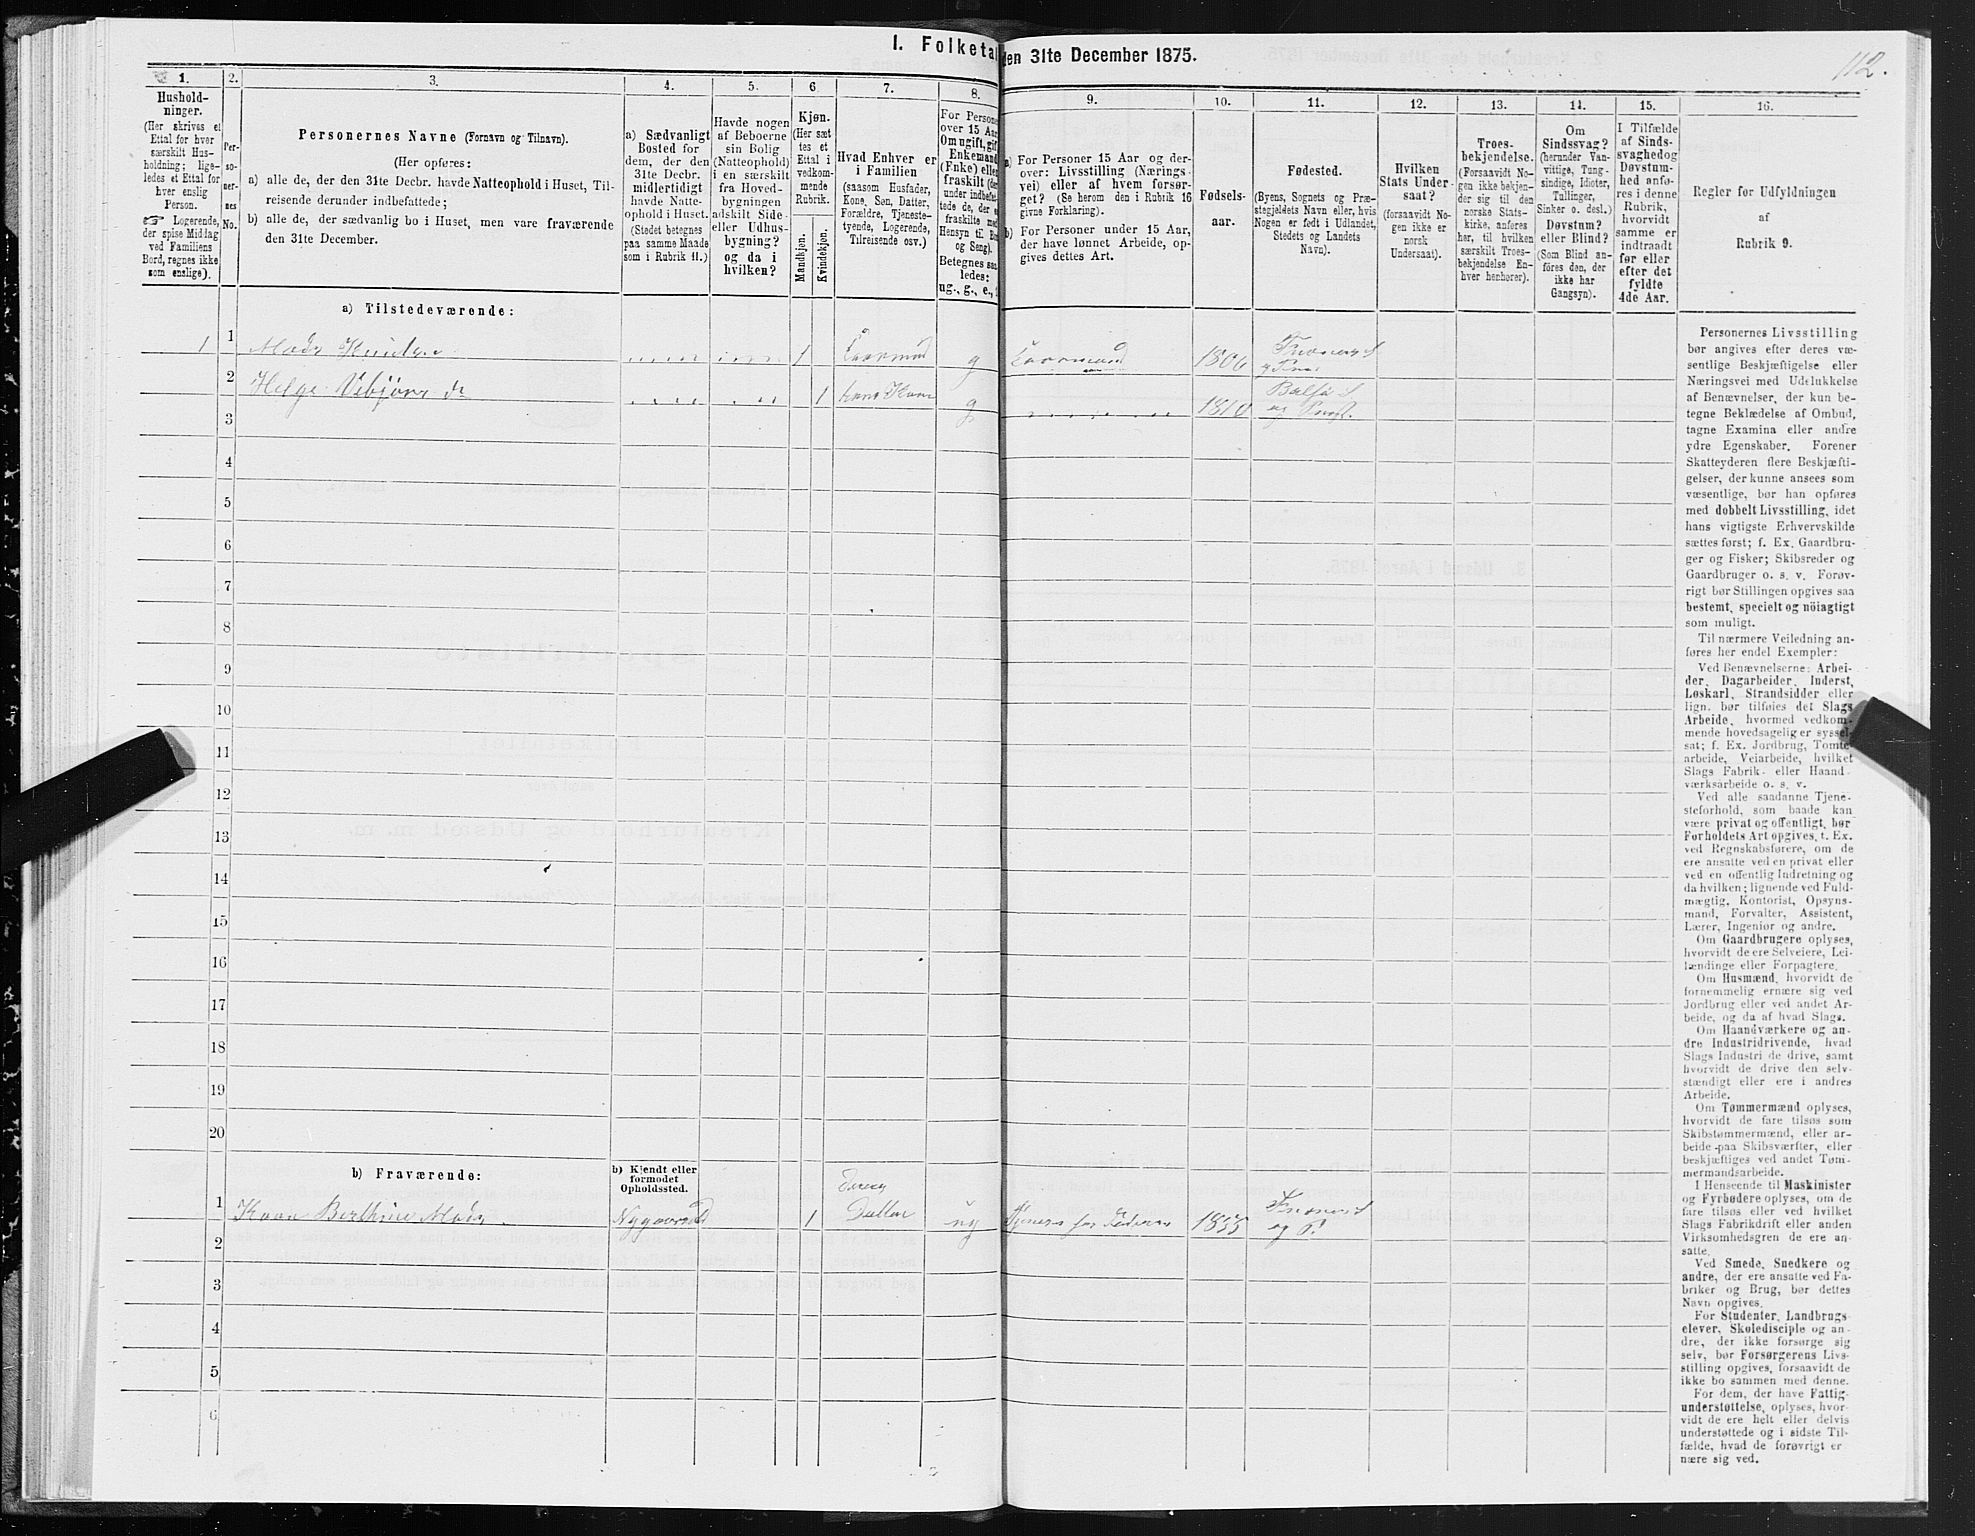 I. Folketal den 31te December 1875.
112.
1.
Hushold-
ninger.
(Her skrives et
Ettal for hver
særskilt Hus-
holdning; lige-
ledes et Ettal for
hver enslig
Person.
☞ Logerende,
der spise Middag
ved Familiens
Bord, regnes ikke
som enslige).
2.
Per-
so-
ner-
nes
No.
3.
Personernes Navne (Fornavn og Tilnavn).
(Her opføres:
a) alle de, der den 31te Decbr. havde Natteophold i Huset, Til-
reisende derunder indbefattede;
b) alle de, der sædvanlig bo i Huset, men vare fraværende
den 31te December.
4.
a) Sædvanligt
Bosted for
dem, der den
31te Decbr.
midlertidigt
havde Natte-
ophold i Huset.
(Stedet betegnes
paa samme Maade
som i Rubrik 11.)
5.
Havde nogen
af Beboerne
sin Bolig
(Natteophold)
i en særskilt
fra Hoved-
bygningen
adskilt Side-
eller Udhus-
bygning?
og da i
hvilken?
6
Kjøn.
(Her sæt
tes et
Ettal i
vedkom-
mende
Rubrik.
Mandkjøn.
Kvindekjøn.
7.
Hvad Enhver er
i Familien
(saasom Husfader,
Kone, Søn, Datter,
Forældre, Tjeneste-
tyende, Logerende,
Tilreisende osv.)
8.
For Persone
over 15 Aar
Om ugift, gif
Enkemand
(Enke) elle
fraskilt (de
under indbefat
tede de, der e
fraskilte med
Hensyn til Bo
og Seng).
Betegnes saa
ledes:
ug., g., e.,
9.
a) For Personer 15 Aar og der-
over: Livsstilling (Nærings-
vei) eller af hvem forsør-
get? (Se herom den i Rubrik 16
givne Forklaring).
b) For Personer under 15 Aar,
der have lønnet Arbeide, op-
gives dettes Art.
10.
Fødsels-
aar.
11.
Fødested.
(Byens, Sognets og Præ-
stegjeldets Navn eller, hvis
Nogen er født i Udlandet,
Stedets og Landets
Navn).
12.
Hvilken
Stats Under-
saat?
(forsaavidt No-
gen ikke er
norsk
Undersaat).
13.
Troes-
bekjendelse.
(Forsaavidt No-
gen ikke bekjen-
der sig til den
norske Stats-
kirke, anføres
her, til hvilken
særskilt Troes-
bekjendelse En-
hver henhører).
14.
Om
Sindssvag?
(herunder Van-
vittige, Tung-
sindige, Idioter,
Tullinger,
Sinker o. desl.)
Døvstum?
eller Blind?
(Som Blind an-
føres den, der
ikke har
Gangsyn).
15.
I Tilfælde
af Sinds-
svaghedog
Døvstum-
hed anfø-
res i denne
Rubrik,
hvorvidt
samme er
indtraadt
før eller
efter det
fyldte
4de Aar.
16.
Regler for Udfyldningen
af
Rubrik 9.
a) Tilstedeværende:
1 1 Mads Knudsen 1 Kaarmand g Kaarmand 1806
2 Helge Vebjørns dr 1 hans Kone g
3
4
5
6
7
8
9
10
11
12
13
14
15
16
17
18
19
20
b) Fraværende:
b) Kjendt eller
formodet
Opholdssted.
1 Berthine Mads Nygaard 1 Datter ug 1855
2
3
4
5
6
Personernes Livsstilling
bør angives efter deres væ-
sentlige Beskjæftigelse eller
Næringsvei med Udelukkelse
af Benævnelser, der kun be-
tegne Beklædelse af Ombud,
tagne Examina eller andre
ydre Egenskaber. Forener
Skatteyderen flere Beskjæfti-
gelser, der kunne ansees som
væsentlige, bør han opføres
med dobbelt Livsstilling, idet
hans vigtigste Erhvervskilde
sættes først; f. Ex. Gaardbru-
ger og Fisker; Skibsreder og
Gaardbruger o. s. v. Forøv-
rigt bør Stillingen opgives saa
bestemt, specielt og nöiagtigt
som muligt.
Til nærmere Veiledning an-
føres her endel Exempler:
Ved Benævnelserne: Arbei-
der, Dagarbeider, Inderst,
Løskarl, Strandsidder eller
lign. bør tilføies det Slags
Arbeide, hvormed vedkom-
mende hovedsagelig er syssel-
sat; f. Ex. Jordbrug, Tomte-
arbeide, Veiarbeide, hvilket
Slags Fabrik- eller Haand-
værksarbeide o. s. v.
Ved alle saadanne Tjene-
steforhold, som baade kan
være privat og offentligt, bør
Forholdets Art opgives, t. Ex.
ved Regnskabsførere, om de
ere ansatte ved en privat eller
ved en offentlig Indretning og
da hvilken; lignende ved Fuld-
mægtig, Kontorist, Opsyns-
mand, Forvalter, Assistent,
Lærer, Ingeniør og andre.
Om Gaardbrugere oplyses,
hvorvidt de ere Selveiere, Lei-
lændinge eller Forpagtere.
Om Husmænd, hvorvidt de
fornemmelig ernære sig ved
Jordbrug eller ved andet Ar-
beide, og da af hvad Slags.
Om Haandværkere og an-
dre Industridrivende, hvad
Slags Industri de drive, samt
hvorvidt de drive den selv-
stændigt eller ere i andres
Arbeide.
Om Tømmermænd oplyses,
hvorvidt de fare tilsøs som
Skibstømmermænd, eller ar-
beide paa Skibsværfter, eller
beskjæftiges ved andet Tøm-
mermandsarbeide.
I Henseende til Maskinister
og Fyrbødere oplyses, om de
fare tilsøs eller ved hvilket
Slags Fabrikdrift eller anden
Virksomhedsgren de ere an-
satte.
Ved Smede, Snedkere og
andre, der ere ansatte ved Fa-
briker og Brug, bør dettes
Navn opgives.
For Studenter, Landbrugs-
elever, Skoledisciple og an-
dre, der ikke forsørge sig
selv, bør Forsørgerens Livs-
stilling opgives, forsaavidt de
ikke bo sammen med denne.
For dem, der have Fattig-
understøttelse, oplyses, hvor-
vidt de ere helt eller delvis
understøttede og i sidste Til-
fælde, hvad de forøvrigt er
nære sig ved.